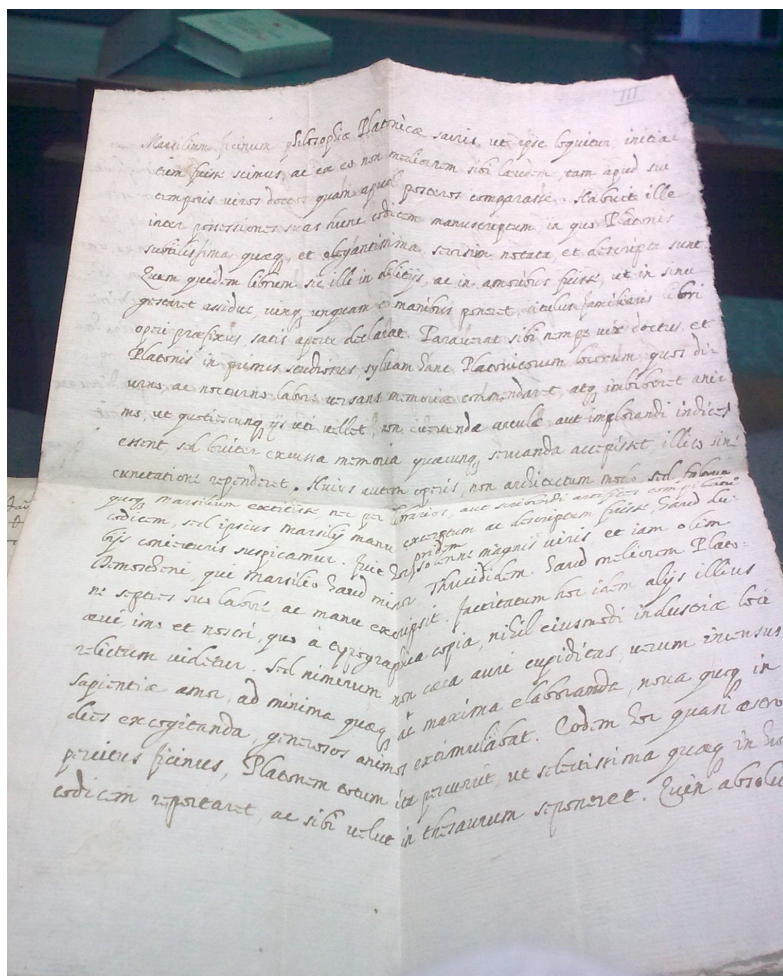 III
Marsilium ficinum philosophiæ Platonicæ sacris, ut ipse loquitur, initia-
tum fuisse scimus, ac ex eo non mediocrem sibi laudem, tam apud sui
temporis viros doctos quam apud posteros comparasse. Habuit ille
inter possessiones suas hunc codicem manuscriptum in quo Platonis
subtilissima quæq, et elegantissima seorsim notata, et descripta sunt.
Quem quidem librum sic ille in delitijs, ac in amoribus fuisse, ut in sinu
gestaret assidue, unquam e manibus poneret, titulus familiaris libri
operi præfixus, satis aperte declarat. Paraverat sibi nempe vir doctus, et
Platonis in primis studiosus, sylvam hanc Platonicorum locorum, quos di-
urno, ac nocturno labore versans memoriæ commendaret, atq imbiberet ani-
mo, ut quotiescunq ijs uti vellet, non evertenda arcula, aut implorandi indices
essent, sed leviter excussa memoria quæcunq servanda accepisset illico sine
cunctatione rependeret. Huius autem operis, non architectum modo sed
quoq marsilium extitisse nec per librarios, aut scribendi artifices
codicem, sed ipsius marsilij manu exceptum ac descriptum fuisse, haud du-
bijs coniecturis suspicamur. fuit hoc pridem solenne magnis viris et iam olim
Demostheni, qui marsilio haud minor Thucididem haud meliorem Plato-
ne septies suo labore ac manu exscripsit. factitatum hoc idem alijs illius
ævi, imo et nostri, quo à typographica copia, nihil eiusmodi industriæ loci
relictum videtur. Sed nimirum non cæca auri cupiditas, verum incensus
sapientiæ amor, ad minima quæq ac maxima elaboranda, nova quoq in
dies excogitanda, generosos animos extimulabat. Eodem hoc quasi æstro
percitus ficinus, Platonem totum ita percurrit, ut selectissima quæq in hunc
codicem reportaret, ac sibi velut in thesaurum seponeret. Quin absolu